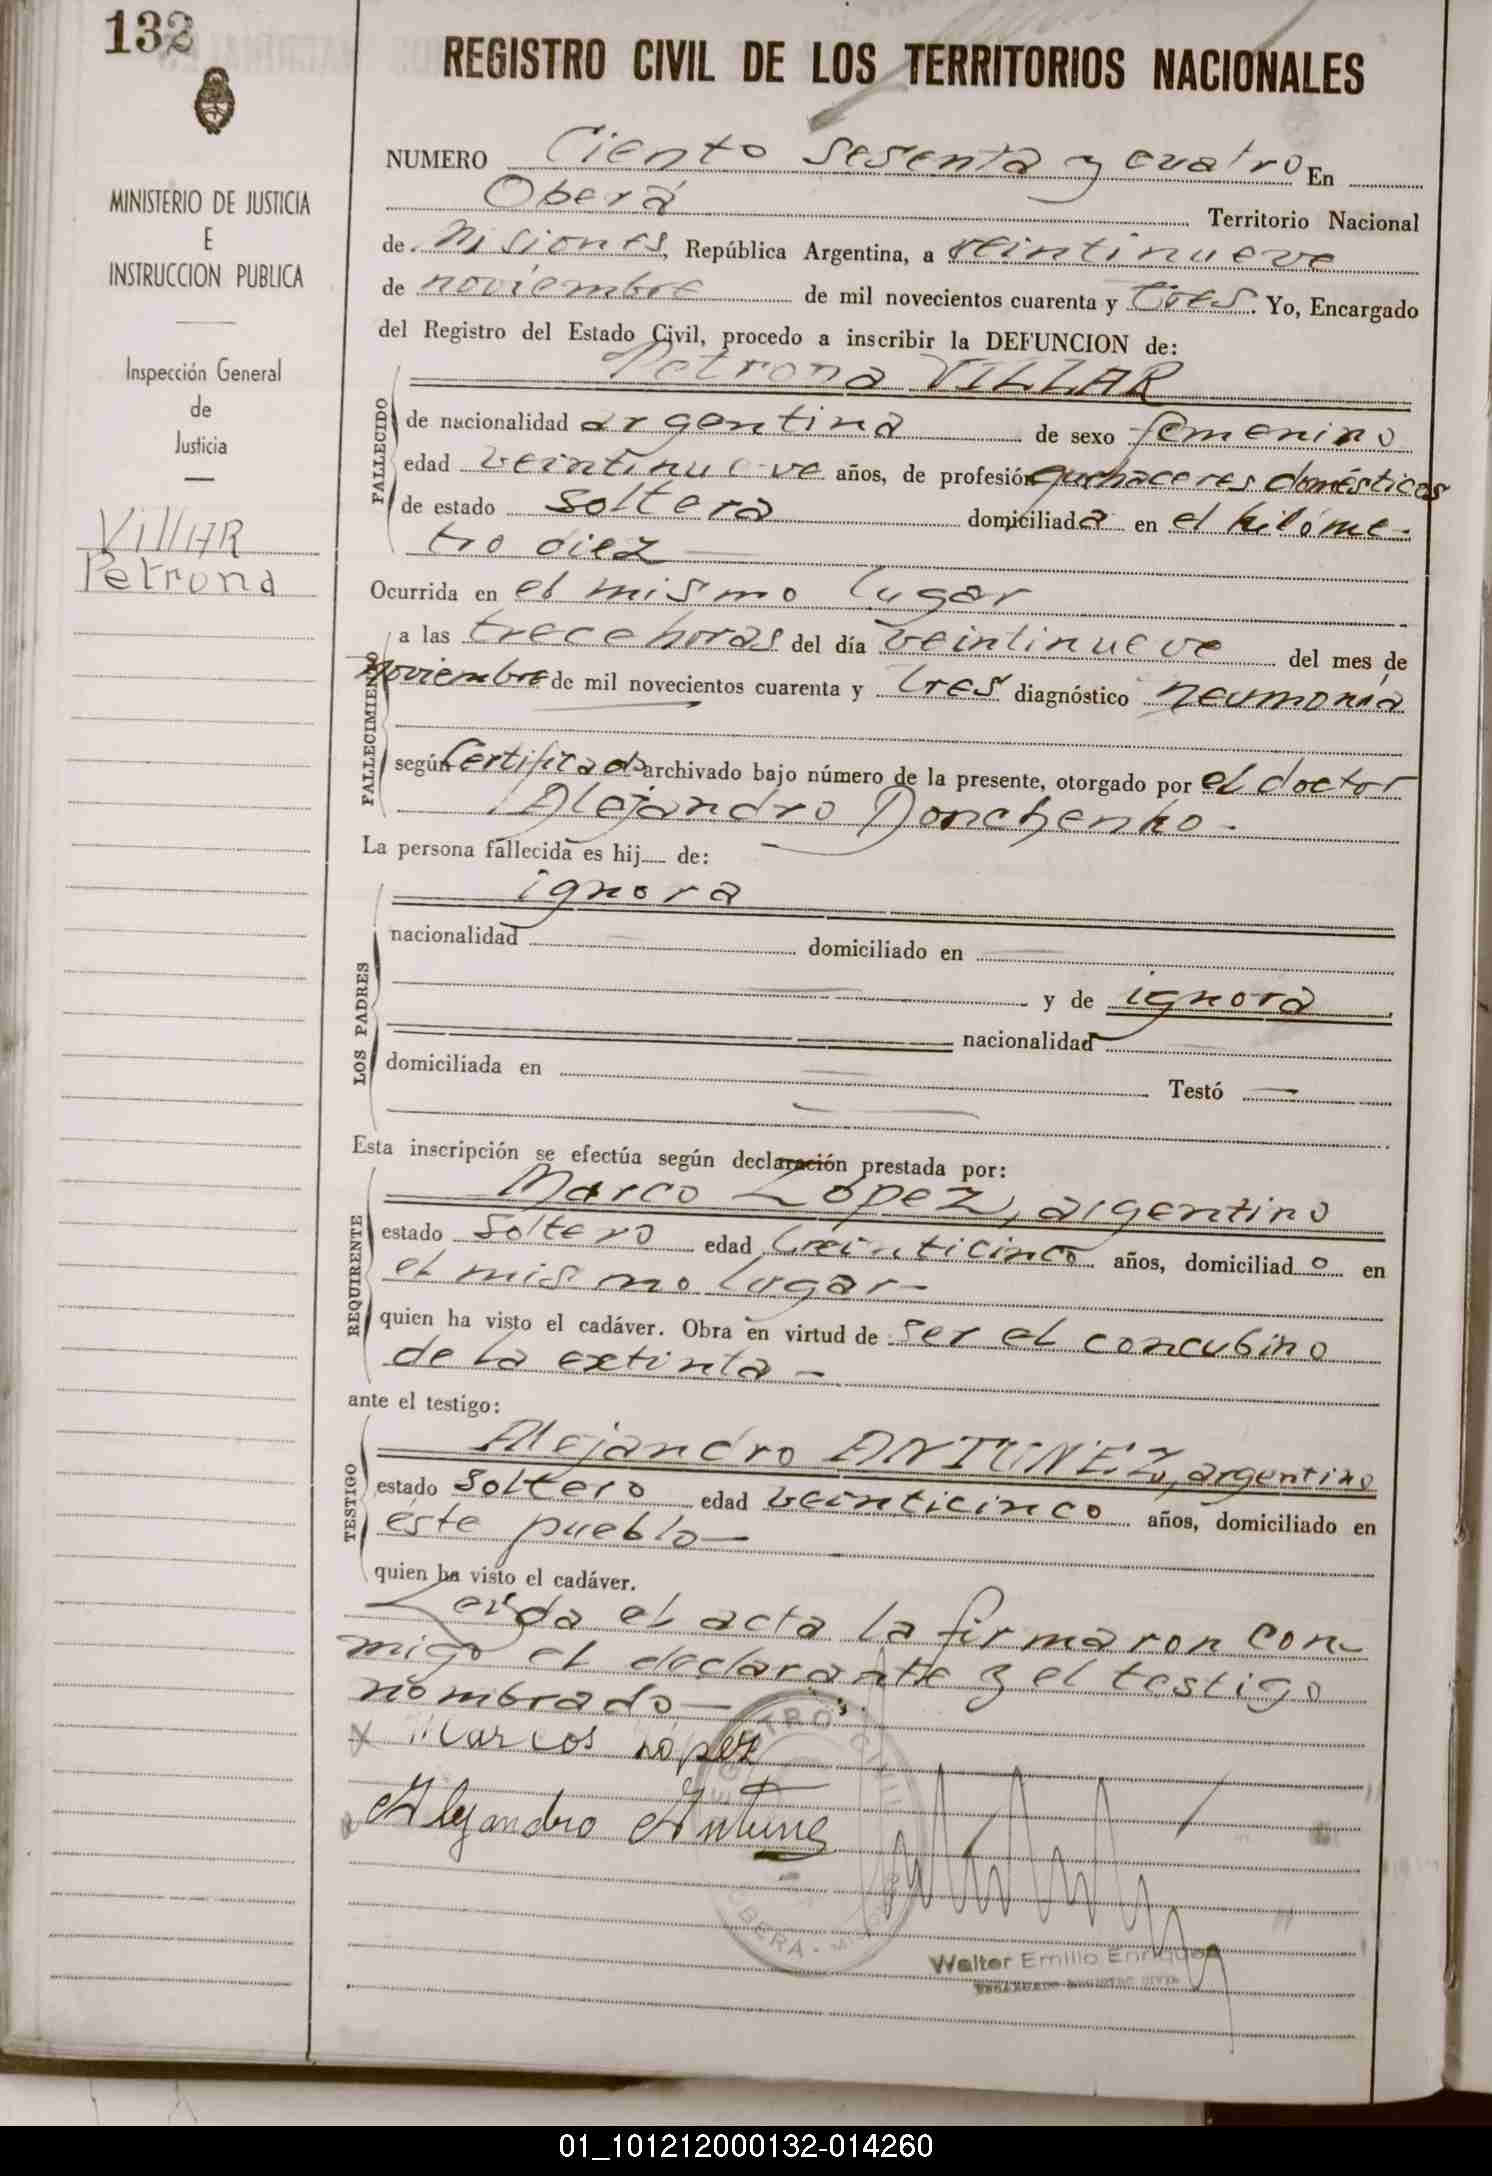 132
REGISTRO CIVIL DE LOS TERRITORIOS NACIONALES
MINISTERIO DE JUSTICIA
E
INSTRUCCION PUBLICA
Inspección General
de
Justicia
VillAR
Petrona
NUMERO Ciento sesenta y cuatro En
Oberá Territorio Nacional
de Misiones, República Argentina, a veintinueve
de noviembre de mil novecientos cuarenta y tres. Yo, Encargado
del Registro del Estado Civil, procedo a inscribir la DEFUNCION de:
Petrona VILLAR
FALLECIDO
de nacionalidad argentina de sexo femenino
edad veintinueve años, de profesión quehaceres domésticos
de estado soltera domiciliada en el kilóme-
tro diez
Ocurrida en el mismo lugar
FALLECIMIENTO
a las trece horas del día veintinueve del mes de
noviembre de mil novecientos cuarenta y tres diagnóstico neumonía
según Certificado archivado bajo número de la presente, otorgado por el doctor
Alejandro Donchenko.-
La persona fallecida es hij de:
LOS PADRES
ignora
nacionalidad domiciliado en
y de ignora
nacionalidad
domiciliada en Testó
Esta inscripción se efectúa según declaración prestada por:
REQUIRENTE
Marco López, argentino
estado soltero edad años, domiciliado en
el mismo lugar-
quien ha visto el cadáver. Obra en virtud de ser el concubino
de la extinta -
ante el testigo:
TESTIGO
Alejandro ANTUNEZ, argentino
estado soltero edad veinticinco años, domiciliado en
éste pueblo-
quien ha visto el cadáver.
Leída el acta la firmaron con-
migo el declarante y el testigo
nombrado-
x Marcos López
x Alejandro Antunez
REGISTRO CIVIL
OBERA
Walter Emilio Enriquez
ENCARGADO REGISTRO CIVIL
01_101212000132-014260